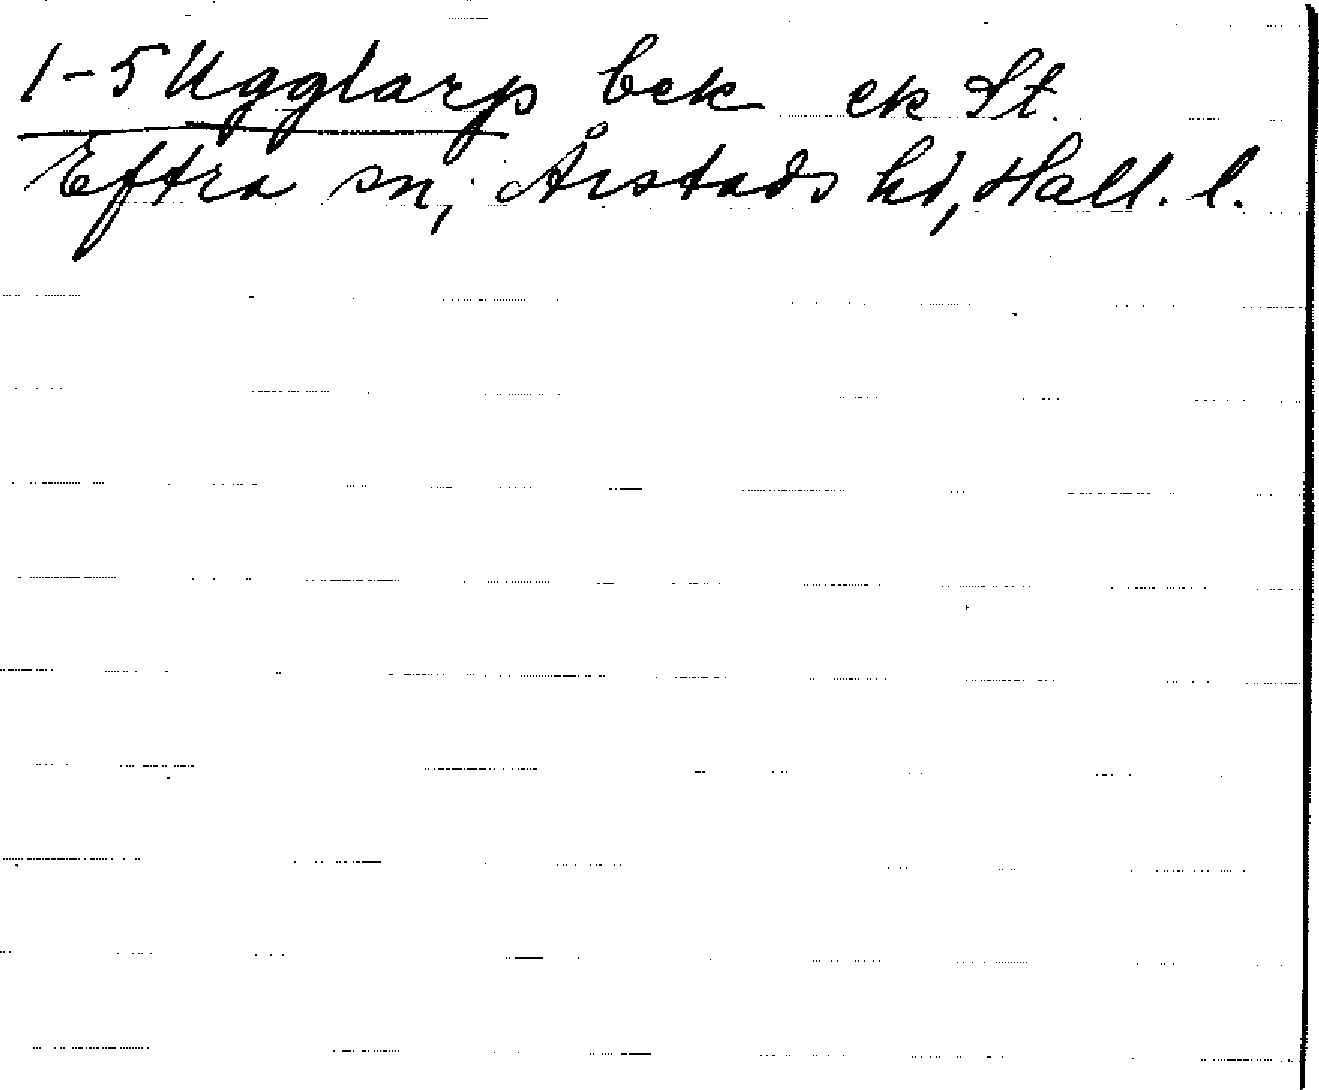 1-5 Ugglarp bek ek St.
Eftra sn, Årstads hd, Hall. l.